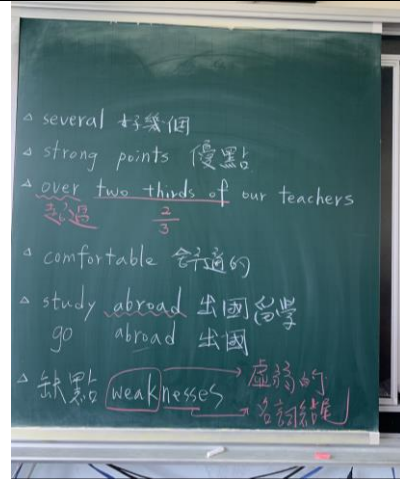 △ several 好幾個
△ strong points 優點
△ over two thirds of our teachers
超過 2/3
△ comfortable 舒適的
△ study abroad 出國留學
go abroad 出國
△ 缺點 weaknesses → 虛弱的
→ 名詞結尾